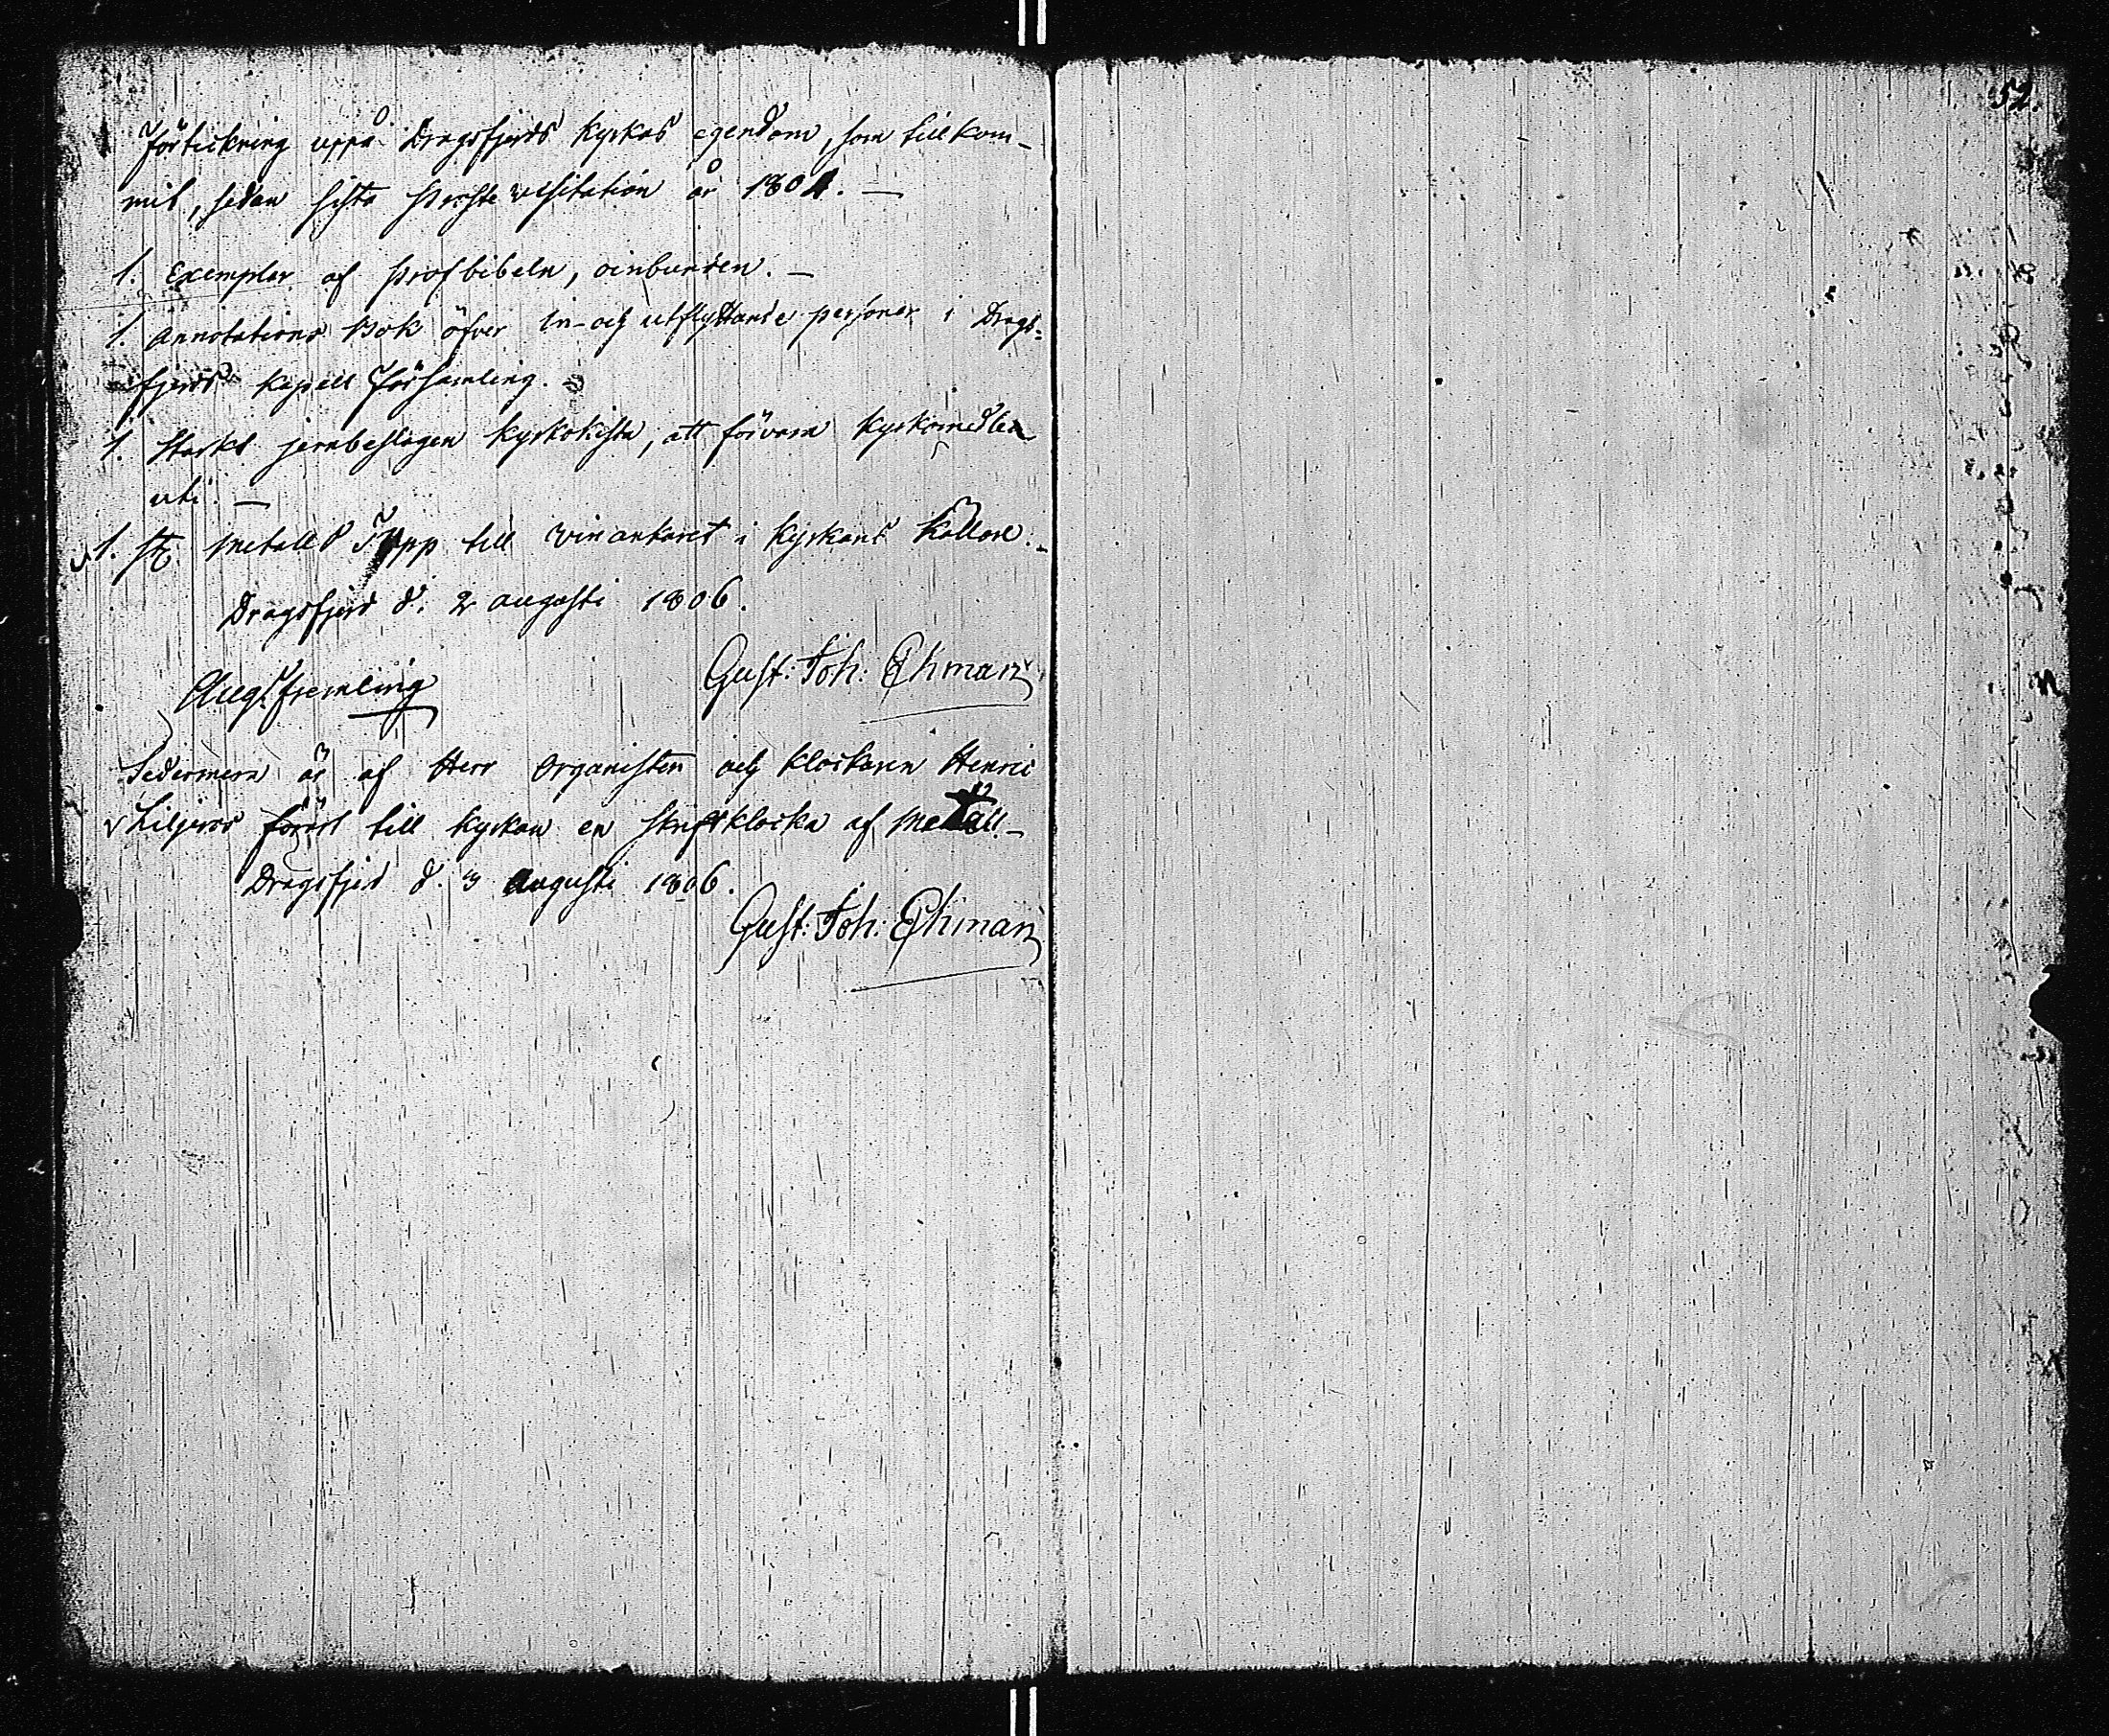 Förtekning uppå Dragsfjerds Kyrkas egendom, som tillkom-
mit, sedan sista Proste visitation år 1804. —
1. Exemplar af Profbibeln, oinbunden. —
1. Annotations Bok öfver in- och utflyttande personer i Drags-
fjerds Kapell Församling.
1. Starkt jernbeslagen Kyrkokista, att förvara Kyrkomedlen
uti. —
1. st. Metalls Tapp till vinankaret i Kyrkans Källare. -
Dragsfjerd d. 2 augusti 1806.
Gust: Joh: Ehman
Sedermera är af Herr Organisten och Klockaren Henric
Liljeros förärt till Kyrkan en Skriftklocka af Metall. -
Dragsfjerd d. 3 Augusti 1806.
Gust: Joh: Ehman
52.